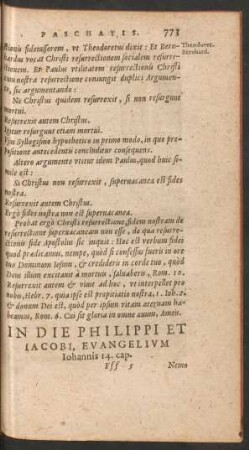 PASCHATIS. 773
ctionis fideiussorem, vt Theodoretus dixit: Et Bern-
hardus vocat Christi resurrectionem socialem resurre-
ctionem. Et Paulus veritatem resurrectionis Christi
cum nostra resurrectione coniungit duplici Argumen-
to, sic argumentando:
Theodoret.
Bernhard.
Ne Christus quidem resurrexit, si non resurgunt
mortui.
Resurrexit autem Christus.
Igitur resurgunt etiam mortui.
Syllogismus hypotheticus in primo modo, in quo pro-
positione antecedenti conceditur consequens.
Altero argumento vtitur idem Paulus, quod huic si-
mile est:
Si Christus non resurrexit, superuacanea est fides
nostra.
Resurrexit autem Christus.
Ergo fides nostra non est superuacanea.
Probat ergò Christi resurrectione, fidem nostram de
resurrectione superuacaneam non esse, de qua resurre-
ctionis fide Apostolus sic inquit: Hoc est verbum fidei
quod prædicamus, nempe, quòd si confessus fueris in ore
tuo Dominum Iesum, & credideris in corde tuo, quòd
Deus illum excitauit à mortuis, saluaberis, Rom. 10.
Resurrexit autem & viuit adhuc, vt interpellet pro
nobis, Hebr. 7. quia ipse est propitiatio nostra, 1. Ioh. 2.
& donum Dei est, quòd per ipsum vitam æternam ha-
beamus, Rom. 6. Cui sit gloria in omne æuum, Amen.
IN DIE PHILIPPI ET
IACOBI, EVANGELIVM
Iohannis 14. cap.
Yſſ 5 Nemo